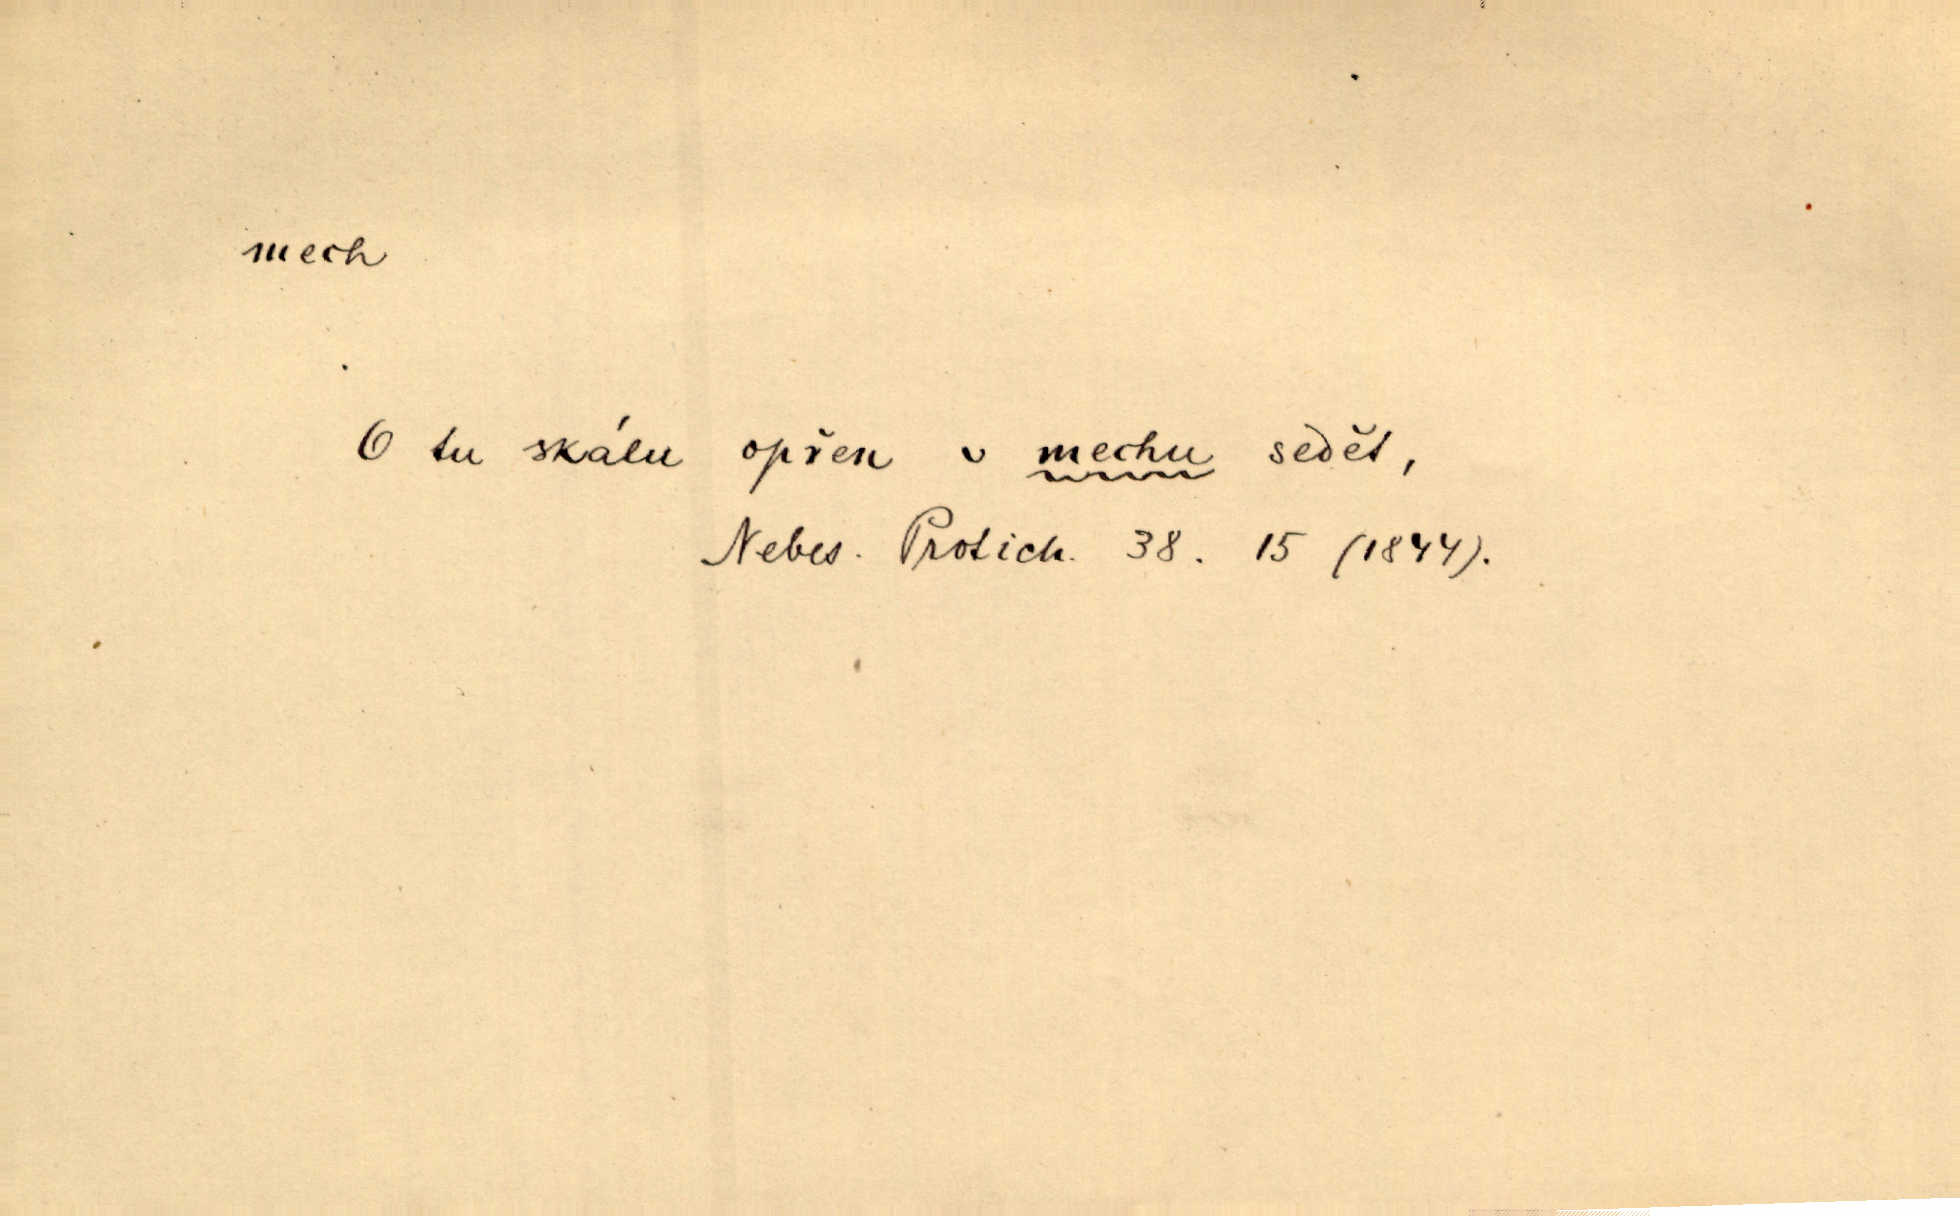 mech
O tu skálu opřen v mechu seděl,
Nebes. Protich. 38. 15 (1844).